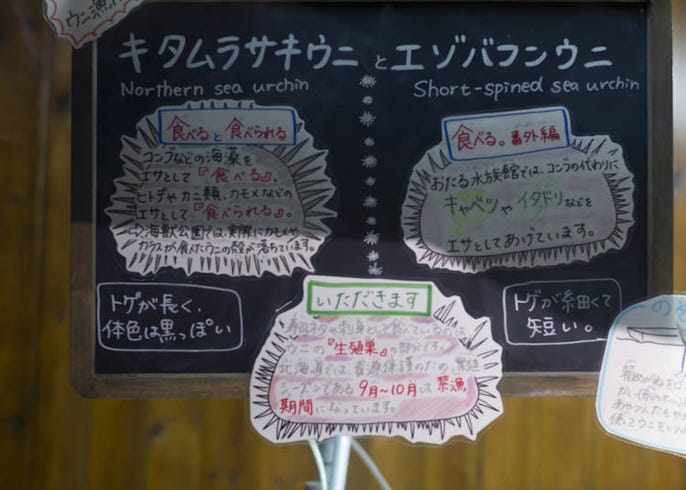 ウニ漁
キタムラサキウニとエゾバフンウニ
Northern sea urchin
Short-spined sea urchin
食べると食べられる
コンブなどの海藻を
エサとして『食べる』。
ヒトデやカニ類、カモメなどの
エサとして『食べられる』。
⇨海獣公園では、実際にカモメや
カラスが食べたウニの殻が落ちています。
食べる。番外編
おたる水族館では、コンブの代わりに
キャベツやイタドリなどを
エサとしてあげています。
トゲが長く、
体色は黒っぽい
トゲが細くて
短い。
いただきます
寿司ネタや刺身として食べているのは
ウニの『生殖巣』の部分です。
北海道では、資源保護のため、繁殖
シーズンである9月〜10月は禁漁
期間になっています。